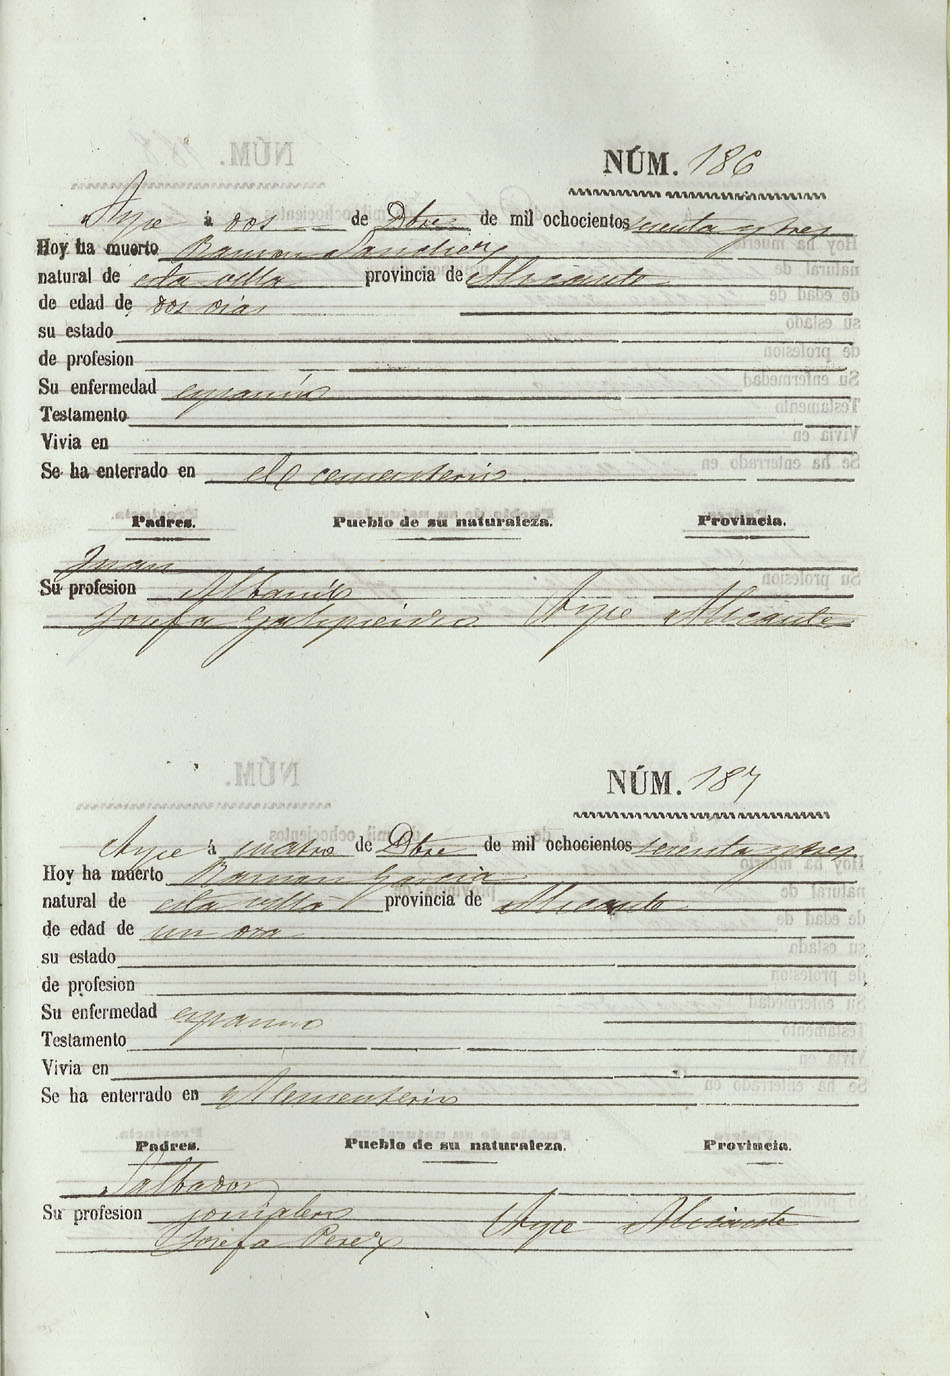 NÚM. 186
Aspe á dos de Dbre de mil ochocientos setenta y tres
Hoy ha muerto Ramon Sanchez
natural de esta villa provincia de Alicante
de edad de dos dias
su estado
de profesion
Su enfermedad espasmo
Testamento
Vivia en
Se ha enterrado en el cementerio
Padres. Pueblo de su naturaleza. Provincia.
Juan
Su profesion Albañil
Josefa Galipienso Aspe Alicante
NÚM. 187
Aspe á cuatro de Dbre de mil ochocientos setenta y tres
Hoy ha muerto Ramon Garcia
natural de esta villa provincia de Alicante
de edad de un ora
su estado
de profesion
Su enfermedad espasmo
Testamento
Vivia en
Se ha enterrado en Cementerio
Padres. Pueblo de su naturaleza. Provincia.
Salbador
Su profesion jornalero
Josefa Perez Aspe Alicante